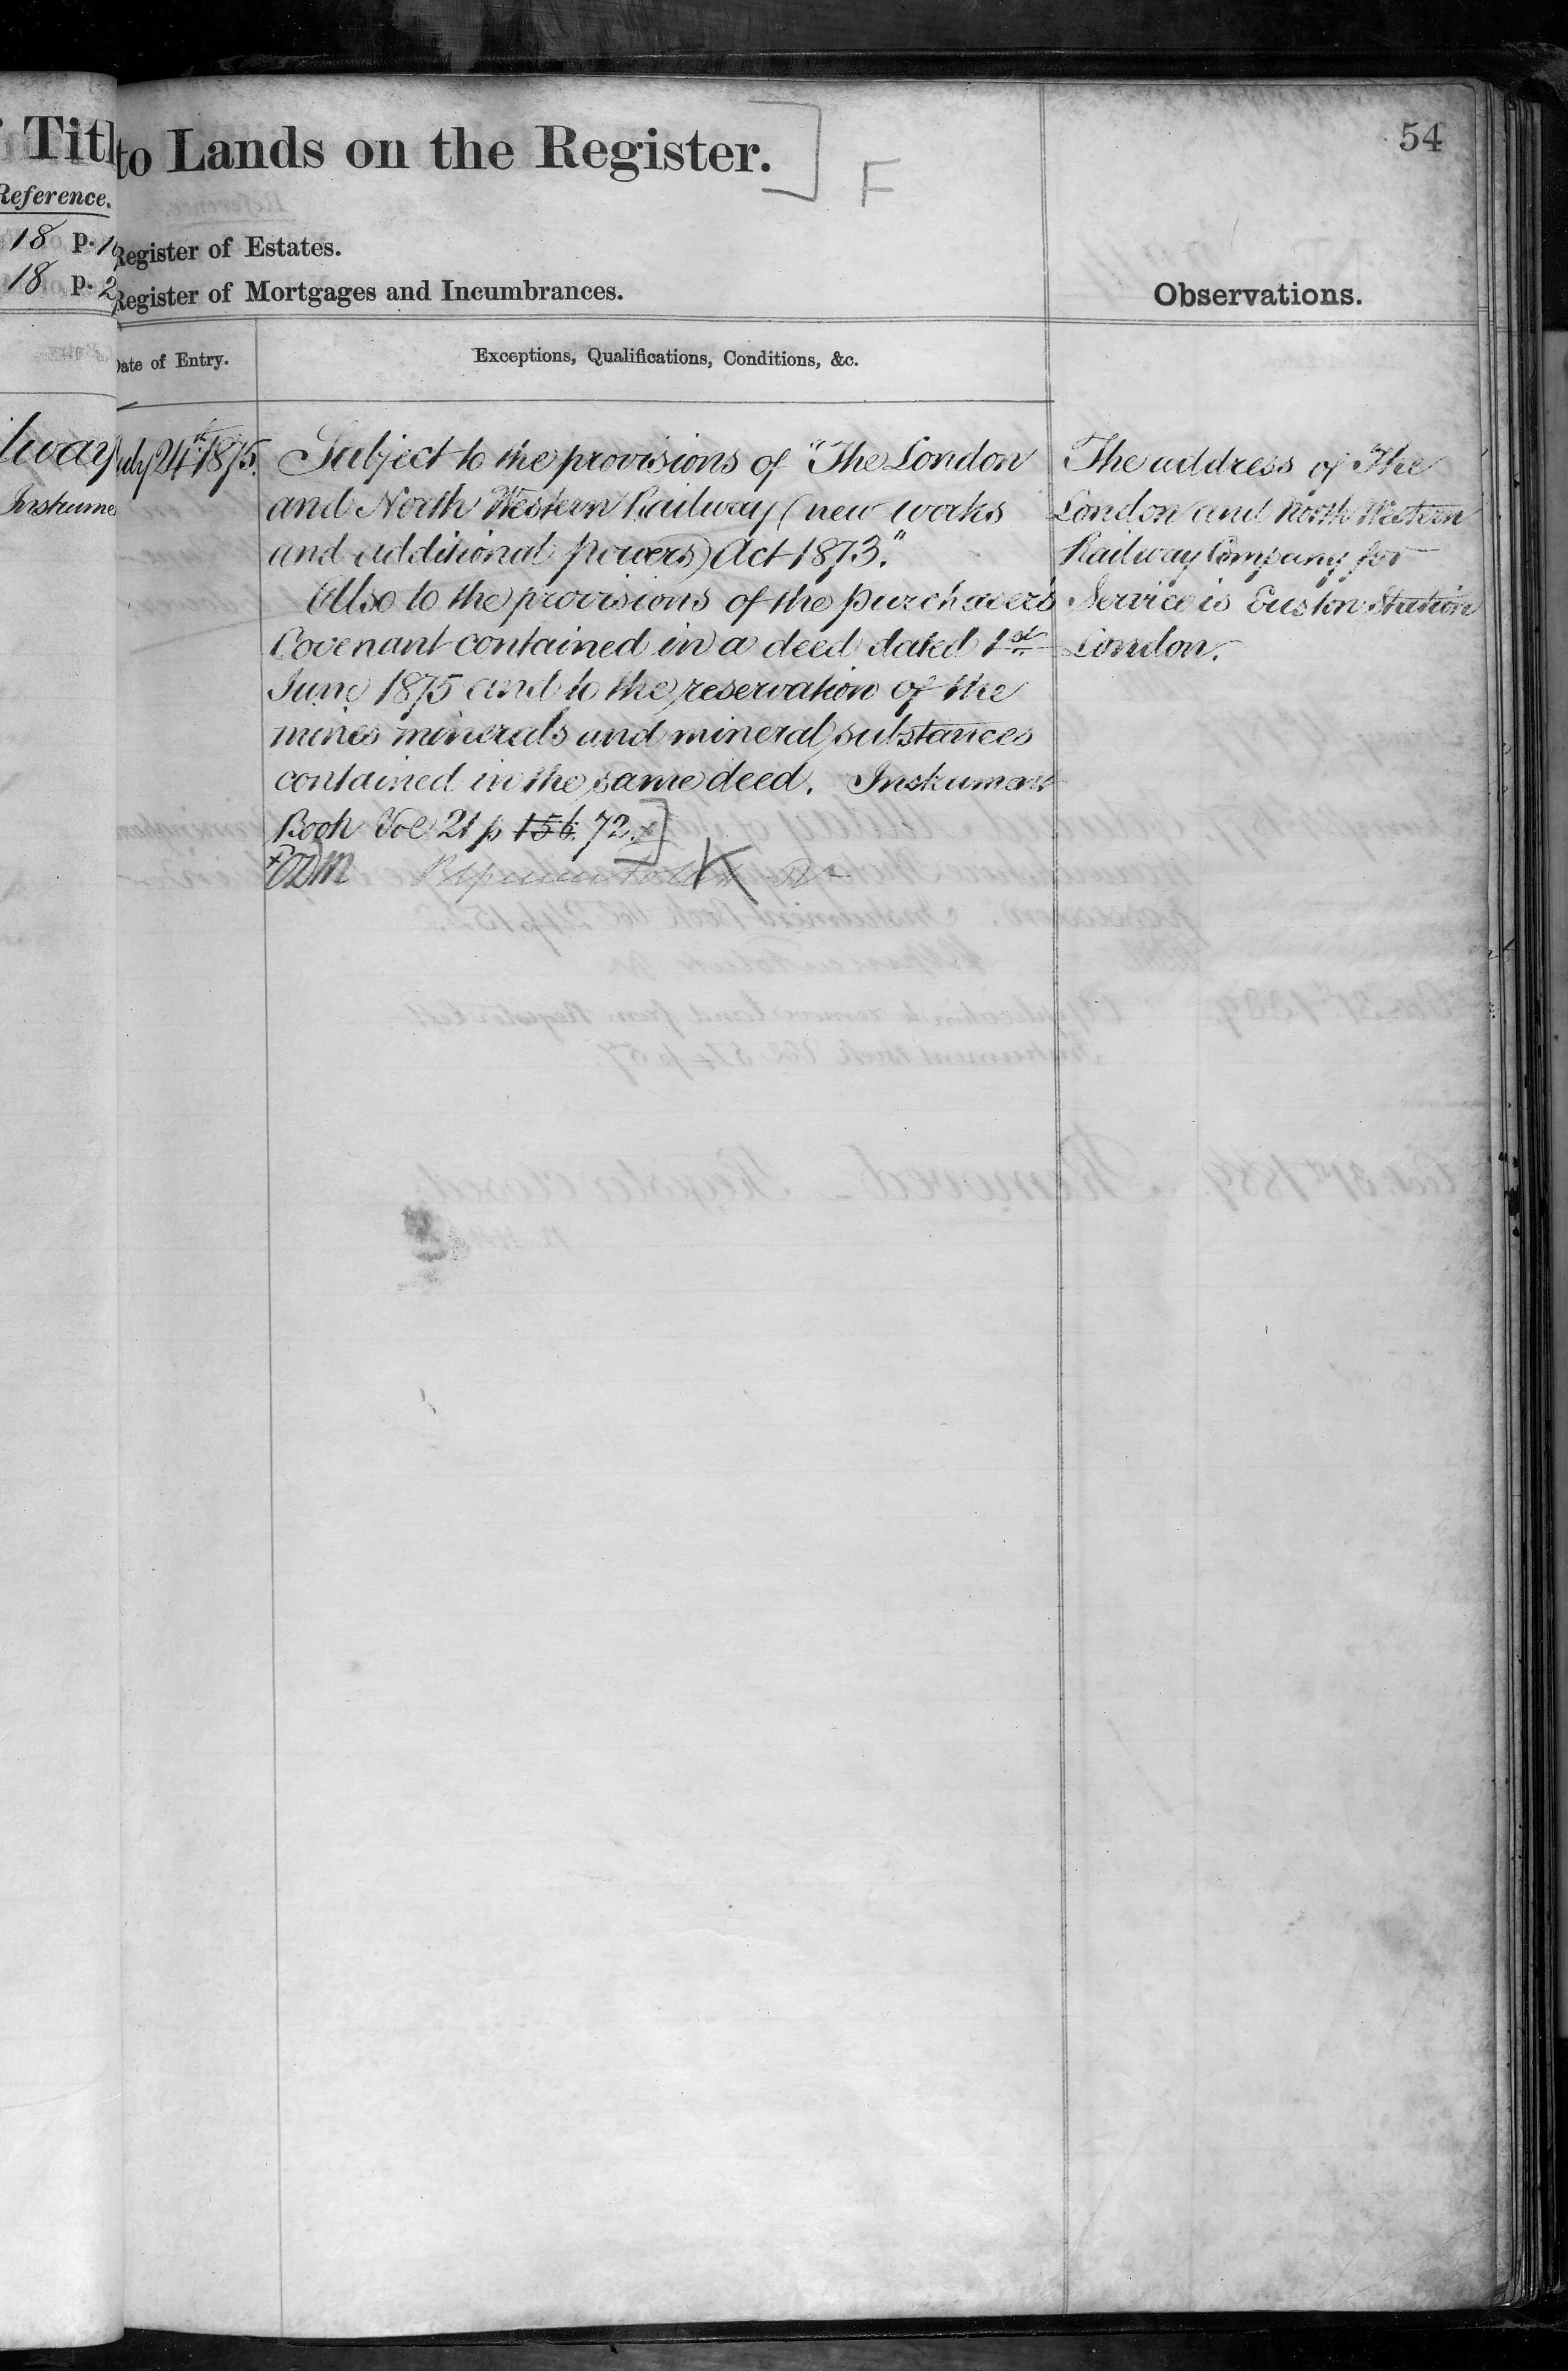 54
Titl
to Lands on the Register. ] F
Reference.
18 p. 1
Register of Estates.
18 p. 2
Register of Mortgages and Incumbrances.
Observations.
Date of Entry.
Exceptions, Qualifications, Conditions, &c.
lway
Instrume
uly 24th 1875.
Subject to the provisions of "The London
and North Western Railway (new works
and additional powers) Act 1873."
Also to the provisions of the purchasers
Covenant contained in a deed dated 1st
June 1875 and to the reservation of the
mines minerals and mineral substances
contained in the same deed. Instrument
Book Vol 21 p 156. 72.x]
K
The address of The
London and North Western
Railway Company for
Service is Euston Station
London.